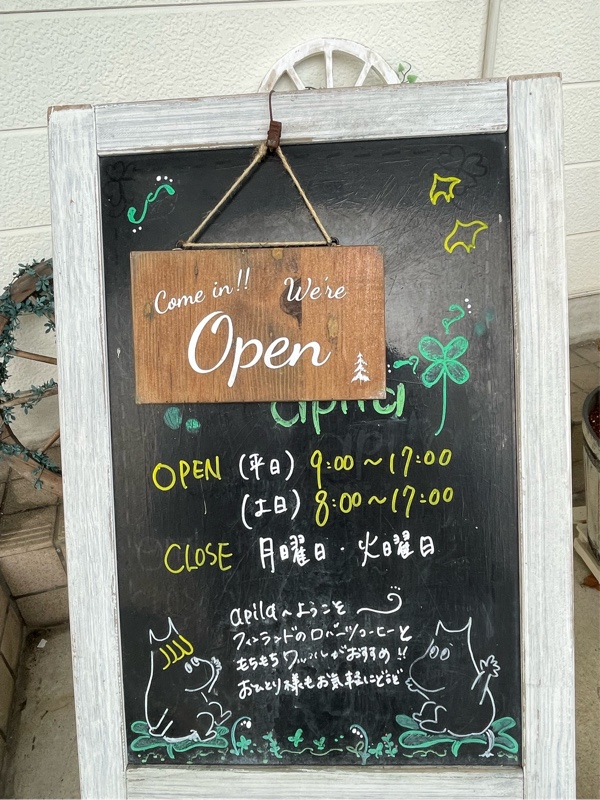 Come in!! We're
Open
apila
OPEN (平日) 9:00〜17:00
(土日) 8:00〜17:00
CLOSE 月曜日・火曜日
apilaへようこそ
フィンランドのロバーツコーヒーと
もちもち がおすすめ!!
おひとり様もお気軽にどうぞ